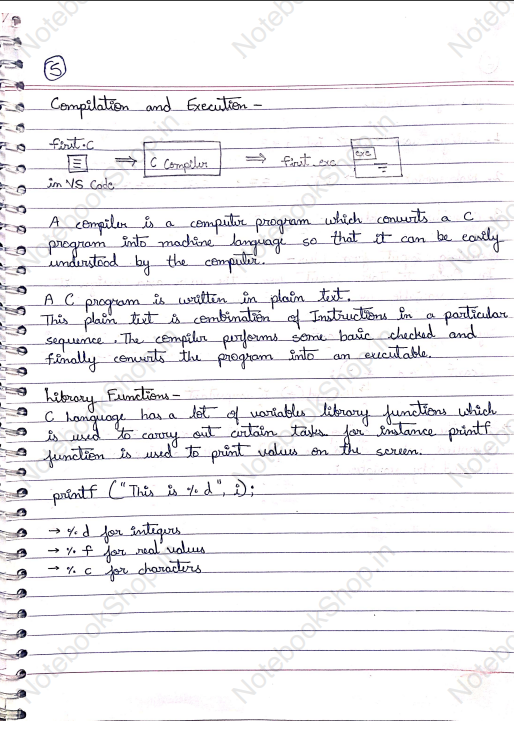 5
Compilation and Execution -
first.c ⇒ C Compiler ⇒ first.exe exe
in VS Code
A compiler is a computer program which converts a C
program into machine language so that it can be easily
understood by the computer.
A C program is written in plain text.
This plain text is combination of Instructions in a particular
sequence. The compiler performs some basic checked and
finally converts the program into an executable.
Library Functions -
C Language has a lot of variables library functions which
is used to carry out certain tasks for instance printf
function is used to print values on the screen.
printf ("This is %d", i);
→ %d for integers
→ %f for real values
→ %c for characters
NotebookShop.in